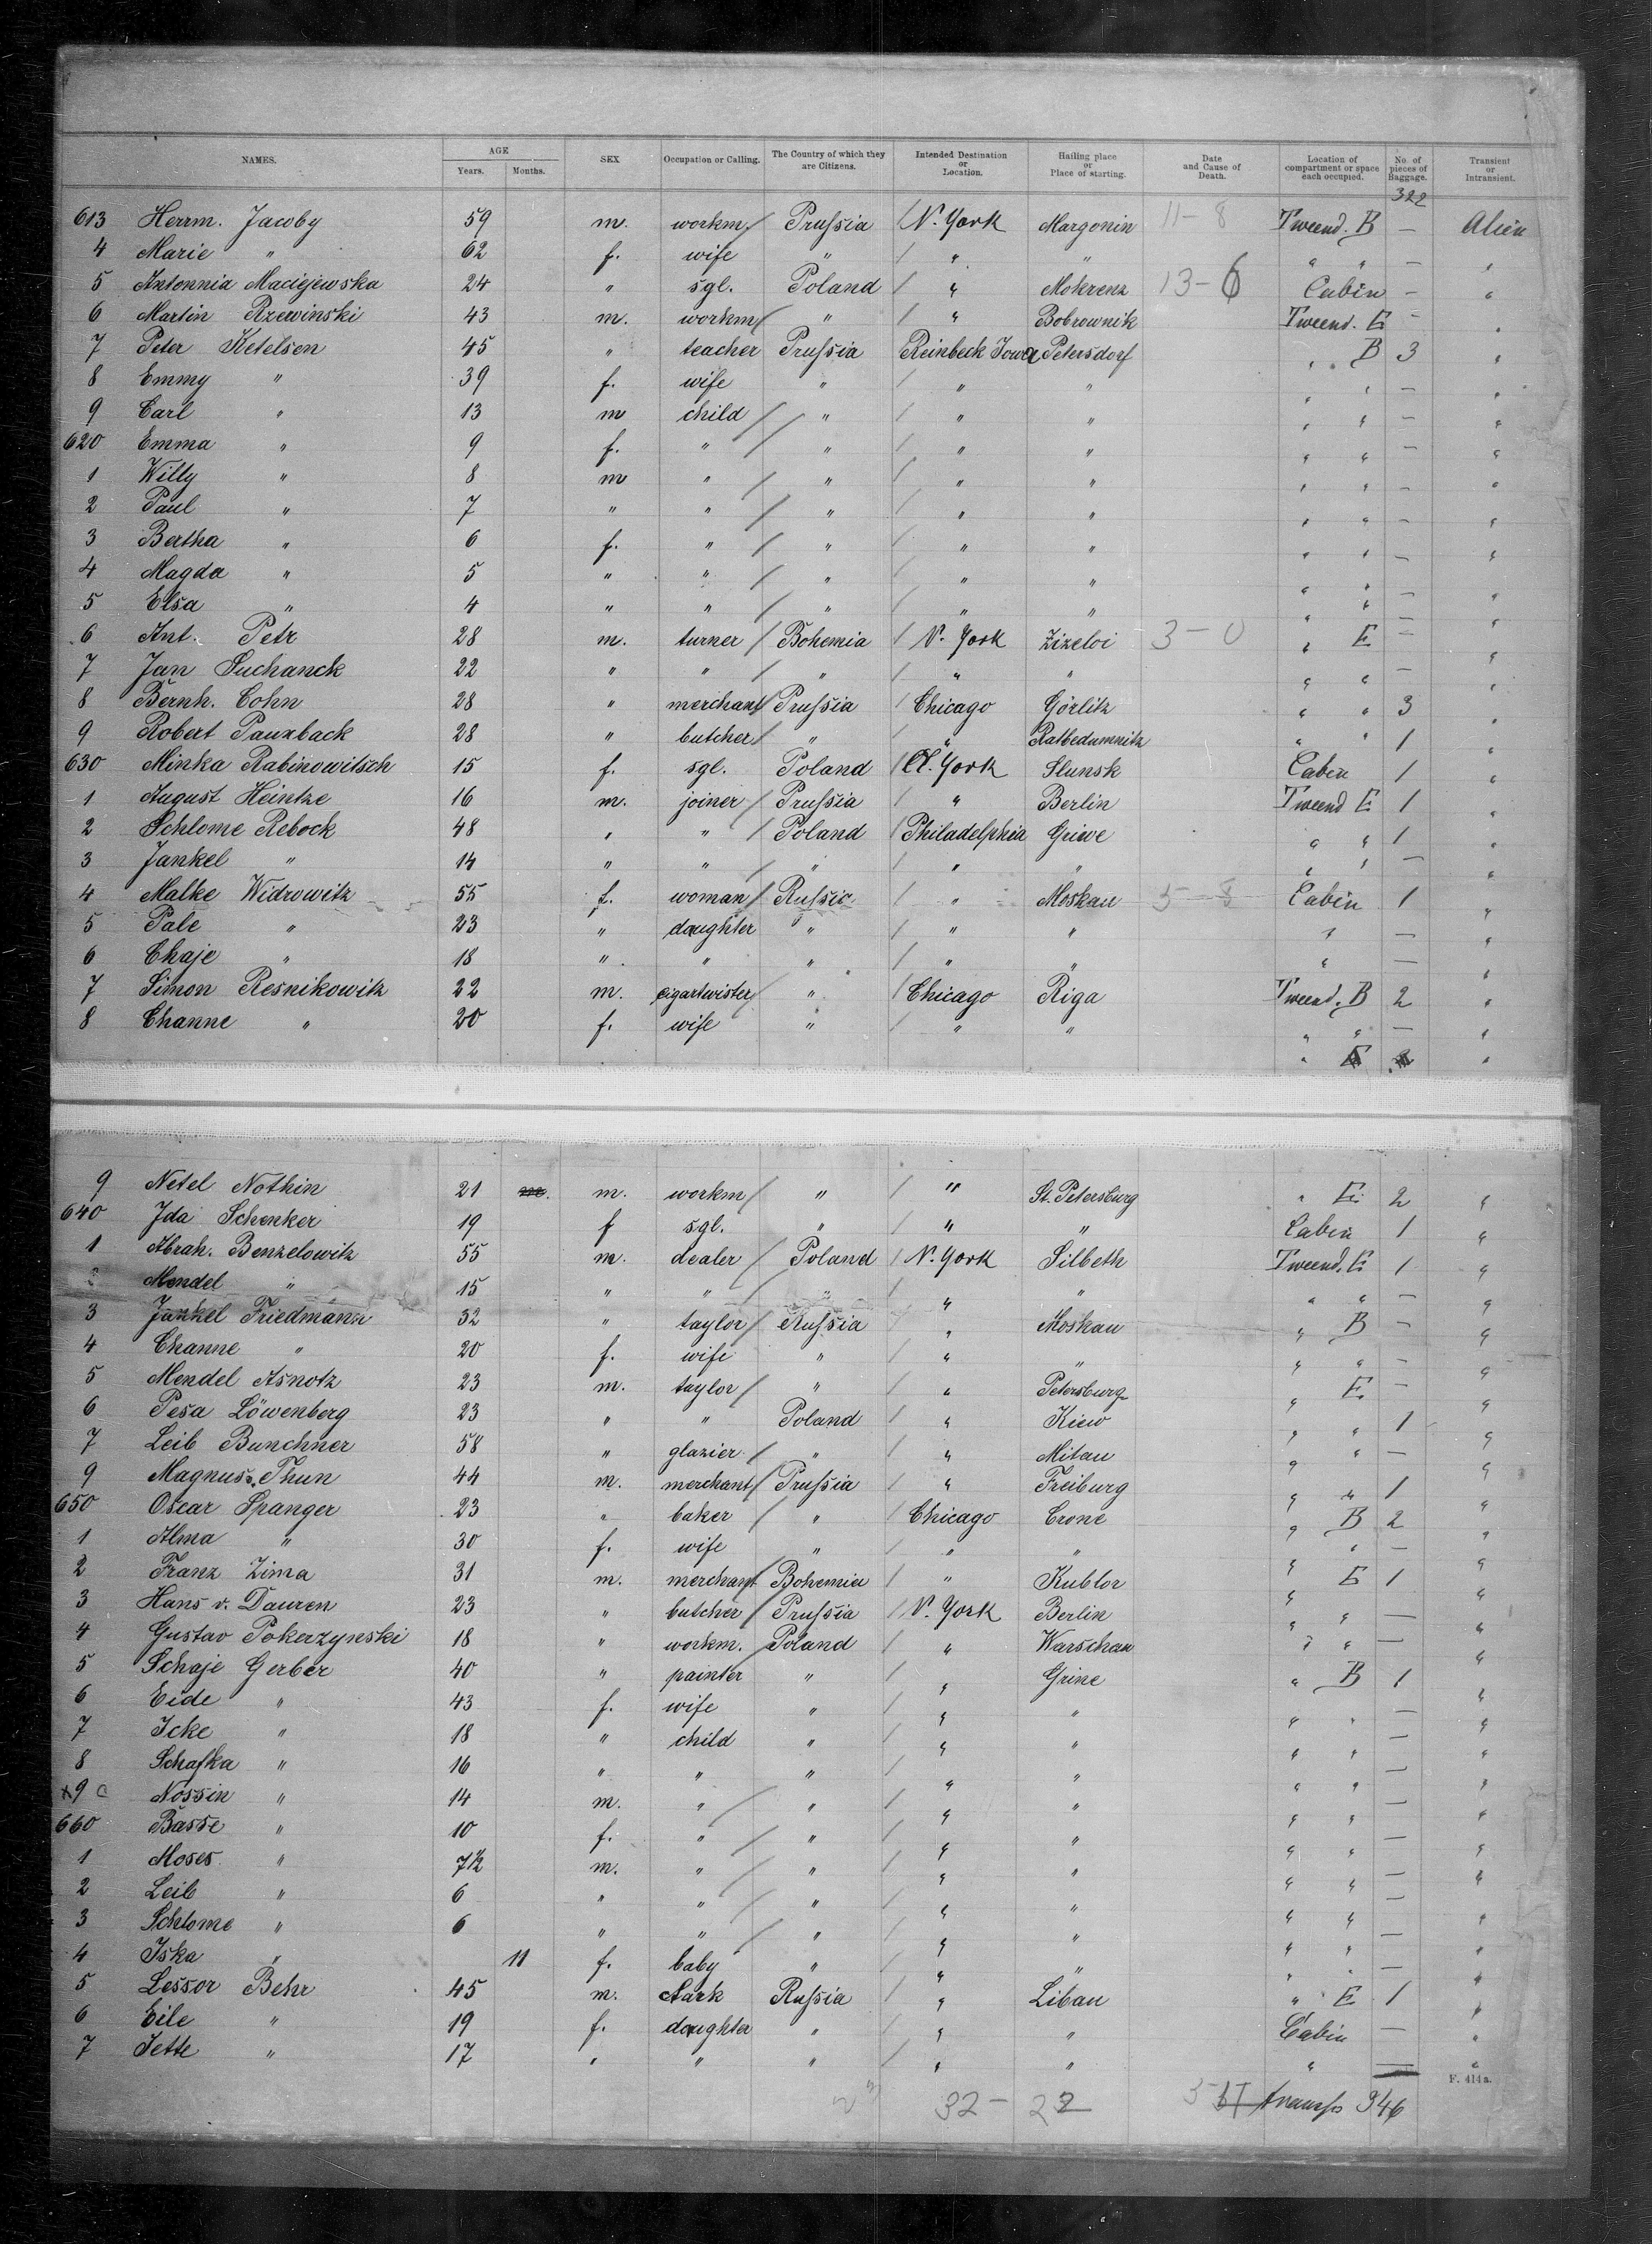 NAMES. AGE Years. Months. SEX Occupation or Calling. The Country of which they are Citizens. Intended Destination or Location. Hailing place or Place of starting. Date and Cause of Death. Location of compartment or space each occupied. No. of pieces of Baggage. Transient or Intransient.
322
613 Herrm. Jacoby 59 m. workm. / Prussia / N. York Margonin 11-8 Tweend. B — Alien
4 Marie " 62 f. wife " / " " " " — "
5 Antonnia Maciejewska 24 " sgl. Poland / " Mokrenz 13-6 Cabin — "
6 Martin Rzewinski 43 m. workm / " / " Bobrownik Tweend. E — "
7 Peter Ketelsen 45 " teacher Prussia Reinbeck Iowa Petersdorf " B 3 "
8 Emmy " 39 f. wife " / " " " " — "
9 Carl " 13 m child / " / " " " " — "
620 Emma " 9 f. " / " / " " " " — "
1 Willy " 8 m " / " / " " " " — "
2 Paul " 7 " " / " / " " " " — "
3 Bertha " 6 f. " / " / " " " " — "
4 Magda " 5 " " / " / " " " " — "
5 Elsa " 4 " " / " / " " " " — "
6 Ant. Petr 28 m. turner / Bohemia / N. York Zizeloi 3-0 " E — "
7 Jan Suchanck 22 " " / " / " " " " — "
8 Bernh. Cohn 28 " merchant / Prussia / Chicago Görlitz " " 3 "
9 Robert Pauxback 28 " butcher / " / " Ratbedumnitz " " 1 "
630 Minka Rabinowitsch 15 f. sgl. Poland / N. York Slunsk Cabin 1 "
1 August Heintze 16 m. joiner / Prussia / " Berlin Tweend E 1 "
2 Schlome Rebock 48 " " / Poland / Philadelphia Griwe " " 1 "
3 Jankel " 14 " " / " / " " " " — "
4 Malke Widrowitz 55 f. woman / Russia / " Moskau Cabin 1 "
5 Pale " 23 " daughter " / " " " — "
6 Chaje " 18 " " " / " " " — "
7 Simon Resnikowitz 22 m. cigartwister / " / Chicago Riga Tweend. B 2 "
8 Channe " 20 f. wife " / " " " " — "
" E "
9 Netel Nothin 21 m. workm / " / " St. Petersburg " E 2 "
640 Ida Schenker 19 f sgl. " / " " Cabin 1 "
1 Abrah. Benzelowitz 55 m. dealer / Poland / N. York Silbeth Tweend. E 1 "
2 Mendel " 15 " " / " / " " " " — "
3 Jankel Friedmann 32 " taylor / Russia / " Moskau " B — "
4 Channe " 20 f. wife " / " " " " — "
5 Mendel Asnotz 23 m. taylor / " / " Petersburg " E — "
6 Pesa Löwenberg 23 " " Poland / " Kiew " " 1 "
7 Leib Bunchner 58 " glazier / " / " Mitau " " — "
9 Magnus Thun 44 m. merchant / Prussia / " Freiburg " " 1 "
650 Oscar Spanger 23 " baker / " / Chicago Crone " B 2 "
1 Alma " 30 f. wife " / " " " " — "
2 Franz Zima 31 m. merchant / Bohemia / " Kublor " E 1 "
3 Hans v. Dauren 23 " butcher / Prussia / N. York Berlin " " — "
4 Gustav Pokerzynski 18 " workm. / Poland / " Warschau " " — "
5 Schaje Gerber 40 " painter / " / " Grine " B 1 "
6 Eide " 43 f. wife " / " " " " — "
7 Icke " 18 " child " / " " " " — "
8 Schafka " 16 " " " / " " " " — "
x9 Nossin " 14 m. " / " / " " " " — "
660 Basse " 10 f. " / " / " " " " — "
1 Moses " 7½ m. " / " / " " " " — "
2 Leib " 6 " " / " / " " " " — "
3 Schlome " 6 " " / " / " " " " — "
4 Iska " 11 f. baby " / " " " " — "
5 Lessor Behr 45 m. clark Russia / " Libau " E 1 "
6 Eile " 19 f. daughter " / " " Cabin — "
7 Jette " 17 " " " / " " " — "
F. 414a.
32 - 22 transfs 346